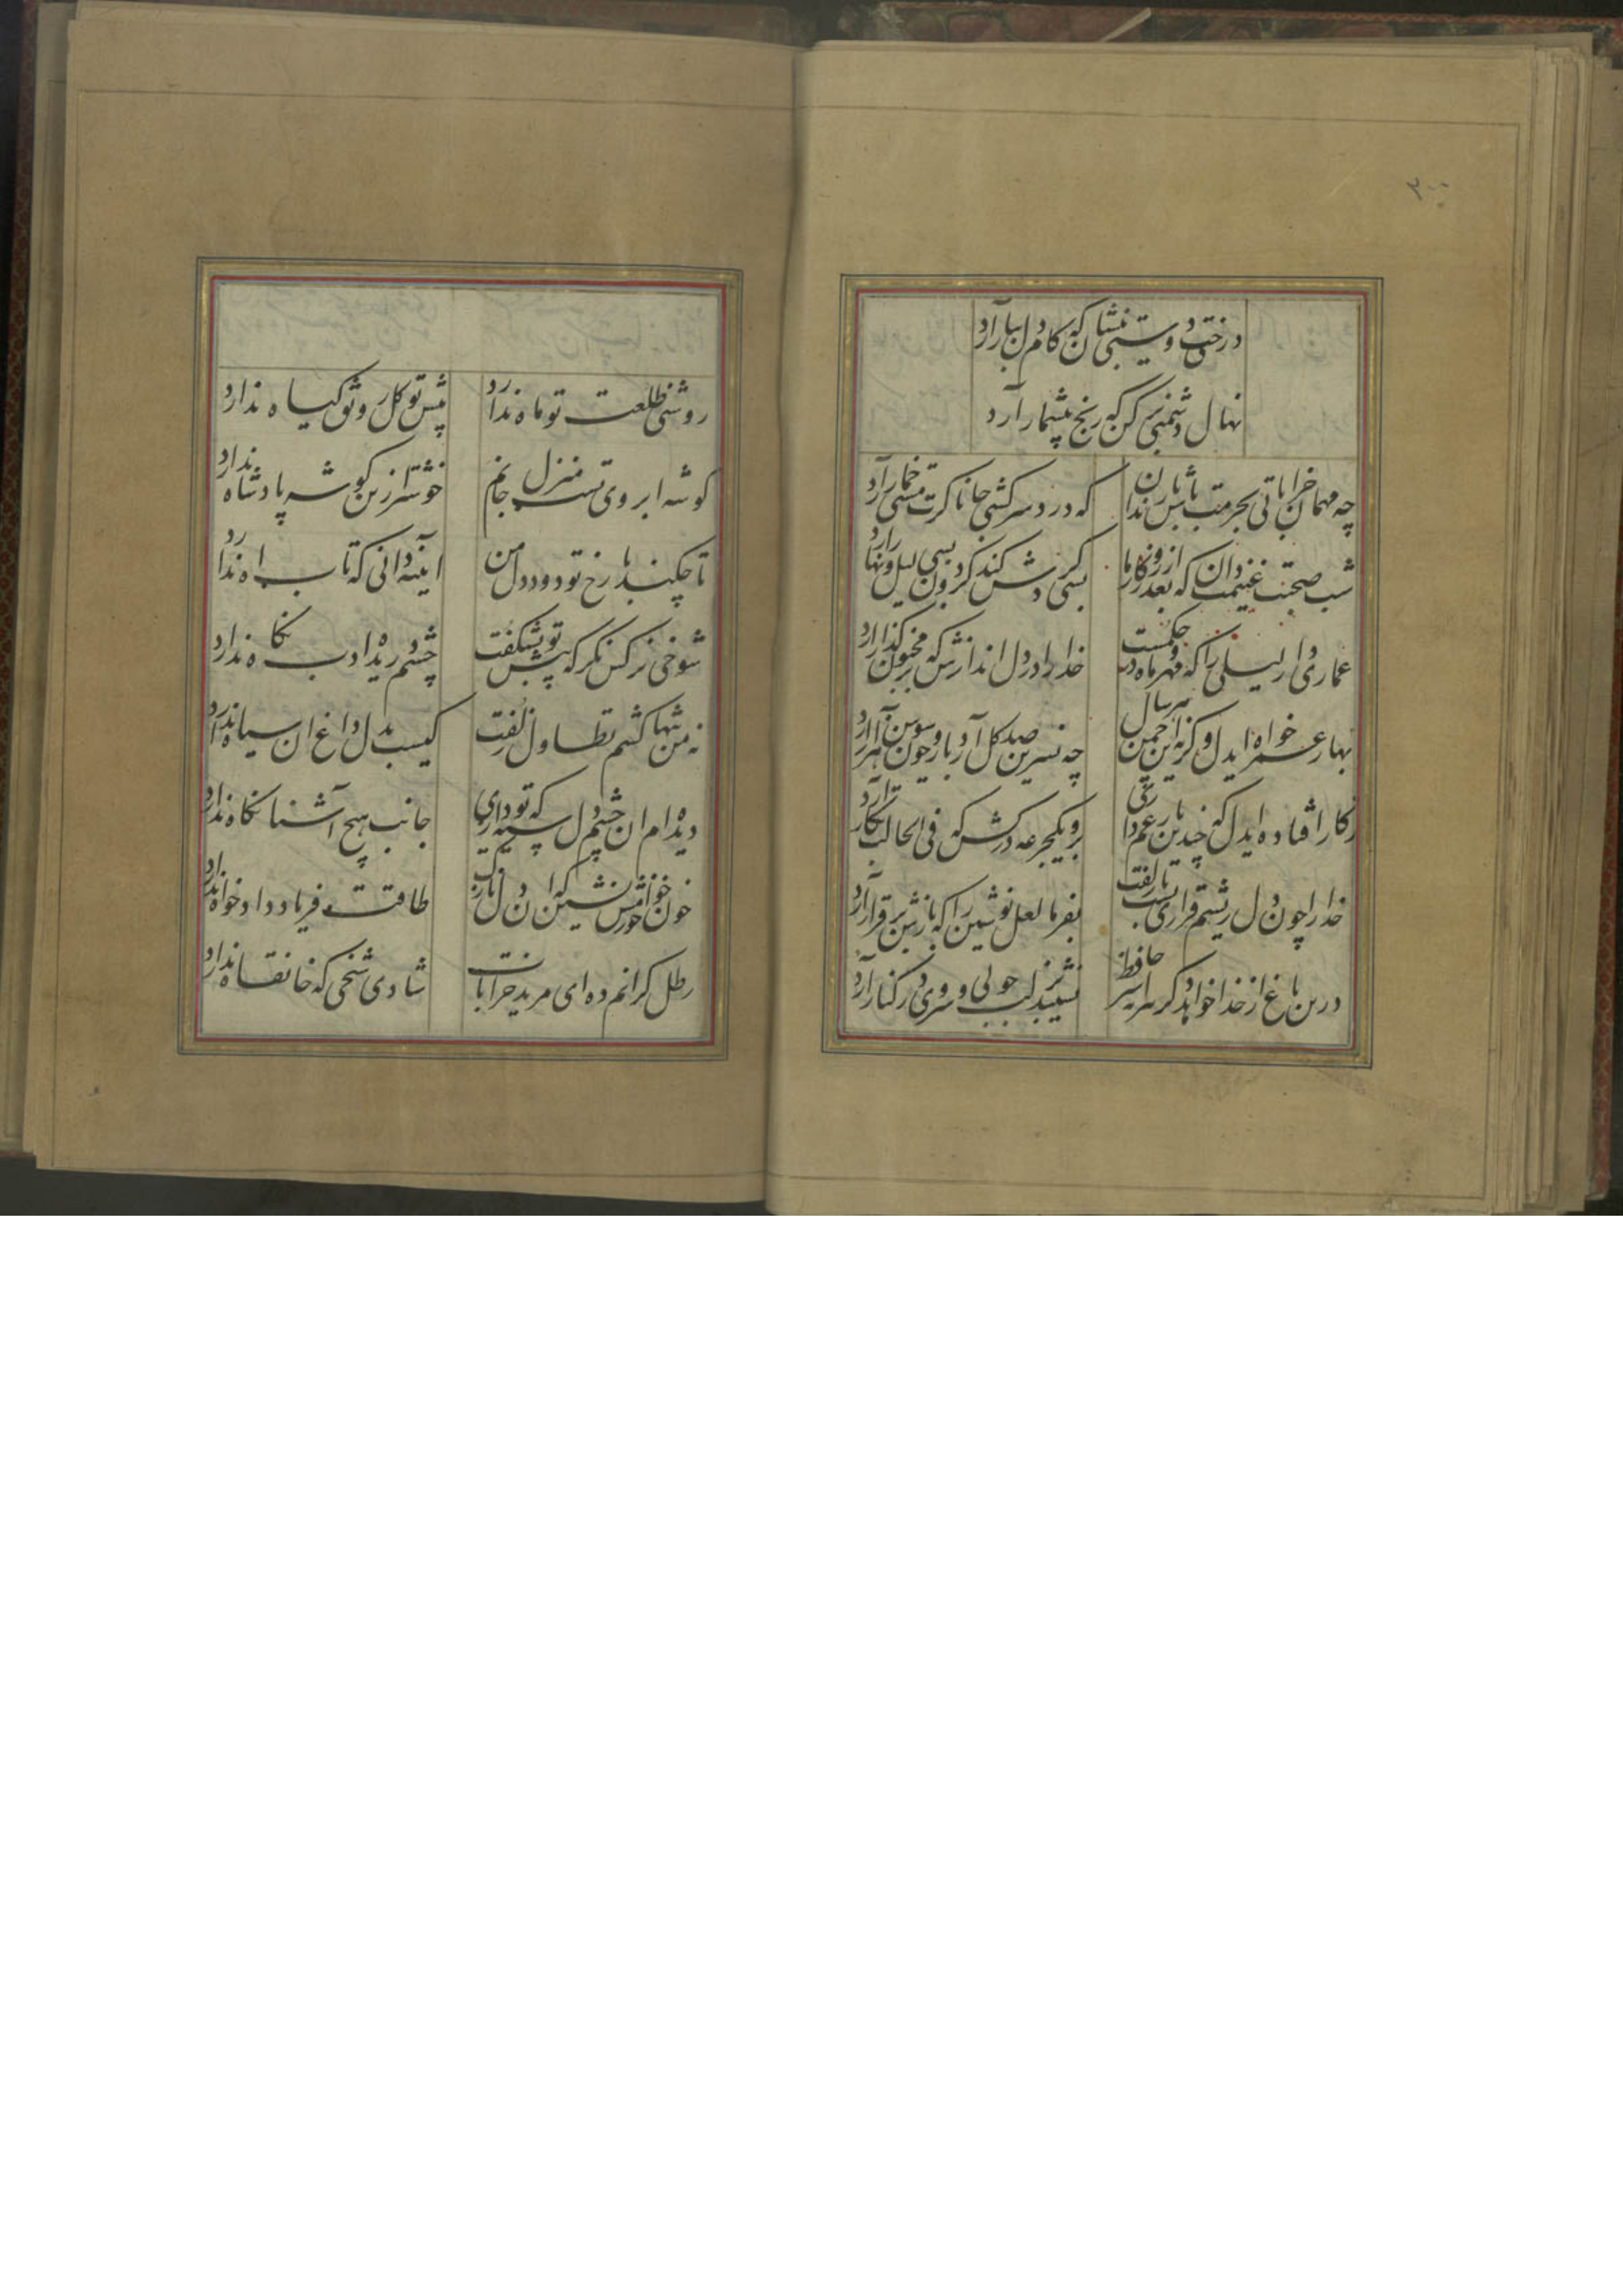 ۲۰۰
درخت دوستی بنشان که کام دل ببار آرد
نهال دشمنی برکن که رنج بیشمار آرد
چه مهمان خراباتی بحرمت باش با رندان
که درد سر کشی جانا کرت مستی خمار آرد
شب صحبت غنیمت دان که بعد از روزکار ما
بسی کردش کند کردون بسی لیل و نهار آرد
عماری دار لیلی را که مهر و ماه در حکمست
خدا را در دل اندازش که بر مجنون کذار آرد
بهار عمر خواه ایدل وکرنه این چمن هر سال
چه نسرین صد کل آرد بار و چون سوسن هزار آرد
زکار افتاده ایدل که چندین بار غم داری
برو یکجرعه درکش که فی الحالت بکار آرد
خدا را چون دل ریشم قراری بست با زلفت
بفرما لعل نوشین را که بازش برقرار آرد
درین باغ از خدا خواهد دکر سر اسیر حافظ
نشیند بر لب جوئی و سروی در کنار آرد
روشنی طلعت تو ماه ندارد
پیش تو کل رونق کیاه ندارد
کوشه ابروی تست منزل جانم
خوشتر ازین کوشه پادشاه ندارد
تا چکند با رخ تو دود دل من
اینه دانی که تاب اه ندارد
شوخی نرکس نکر که پیش تو بشکفت
چشم دریده ادب نکاه ندارد
نه من تنها کشم تطاول زلفت
کیست بدل داغ ان سیاه ندارد
دیده ام ان چشم دل سیه که تو داری
جانب هیچ آشنا نکاه ندارد
خون خور و خامش نشین که ان دل نازک
طاقت فریاد داد خواه ندارد
رطل کرانم ده ای مرید خرابات
شادی شیخی که خانقاه ندارد